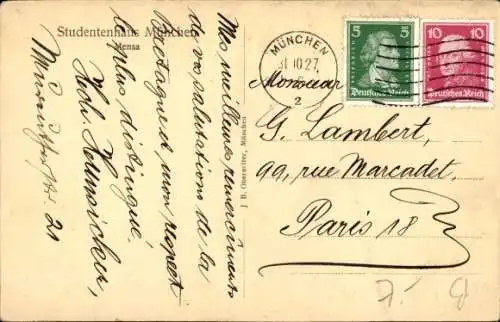 Studentenhaus München
Mensa
Mes meilleurs remerciments
de vos salutations de la
Bretagne et mon respect
le plus distingué.
Hch.
21
J. B. Obernetter, München
MÜNCHEN
31.10.27.
2
5
5
Deutsches Reich
10
10
Deutsches Reich
Monsieur
G. Lambert,
99, rue Marcadet,
Paris 18
7.-